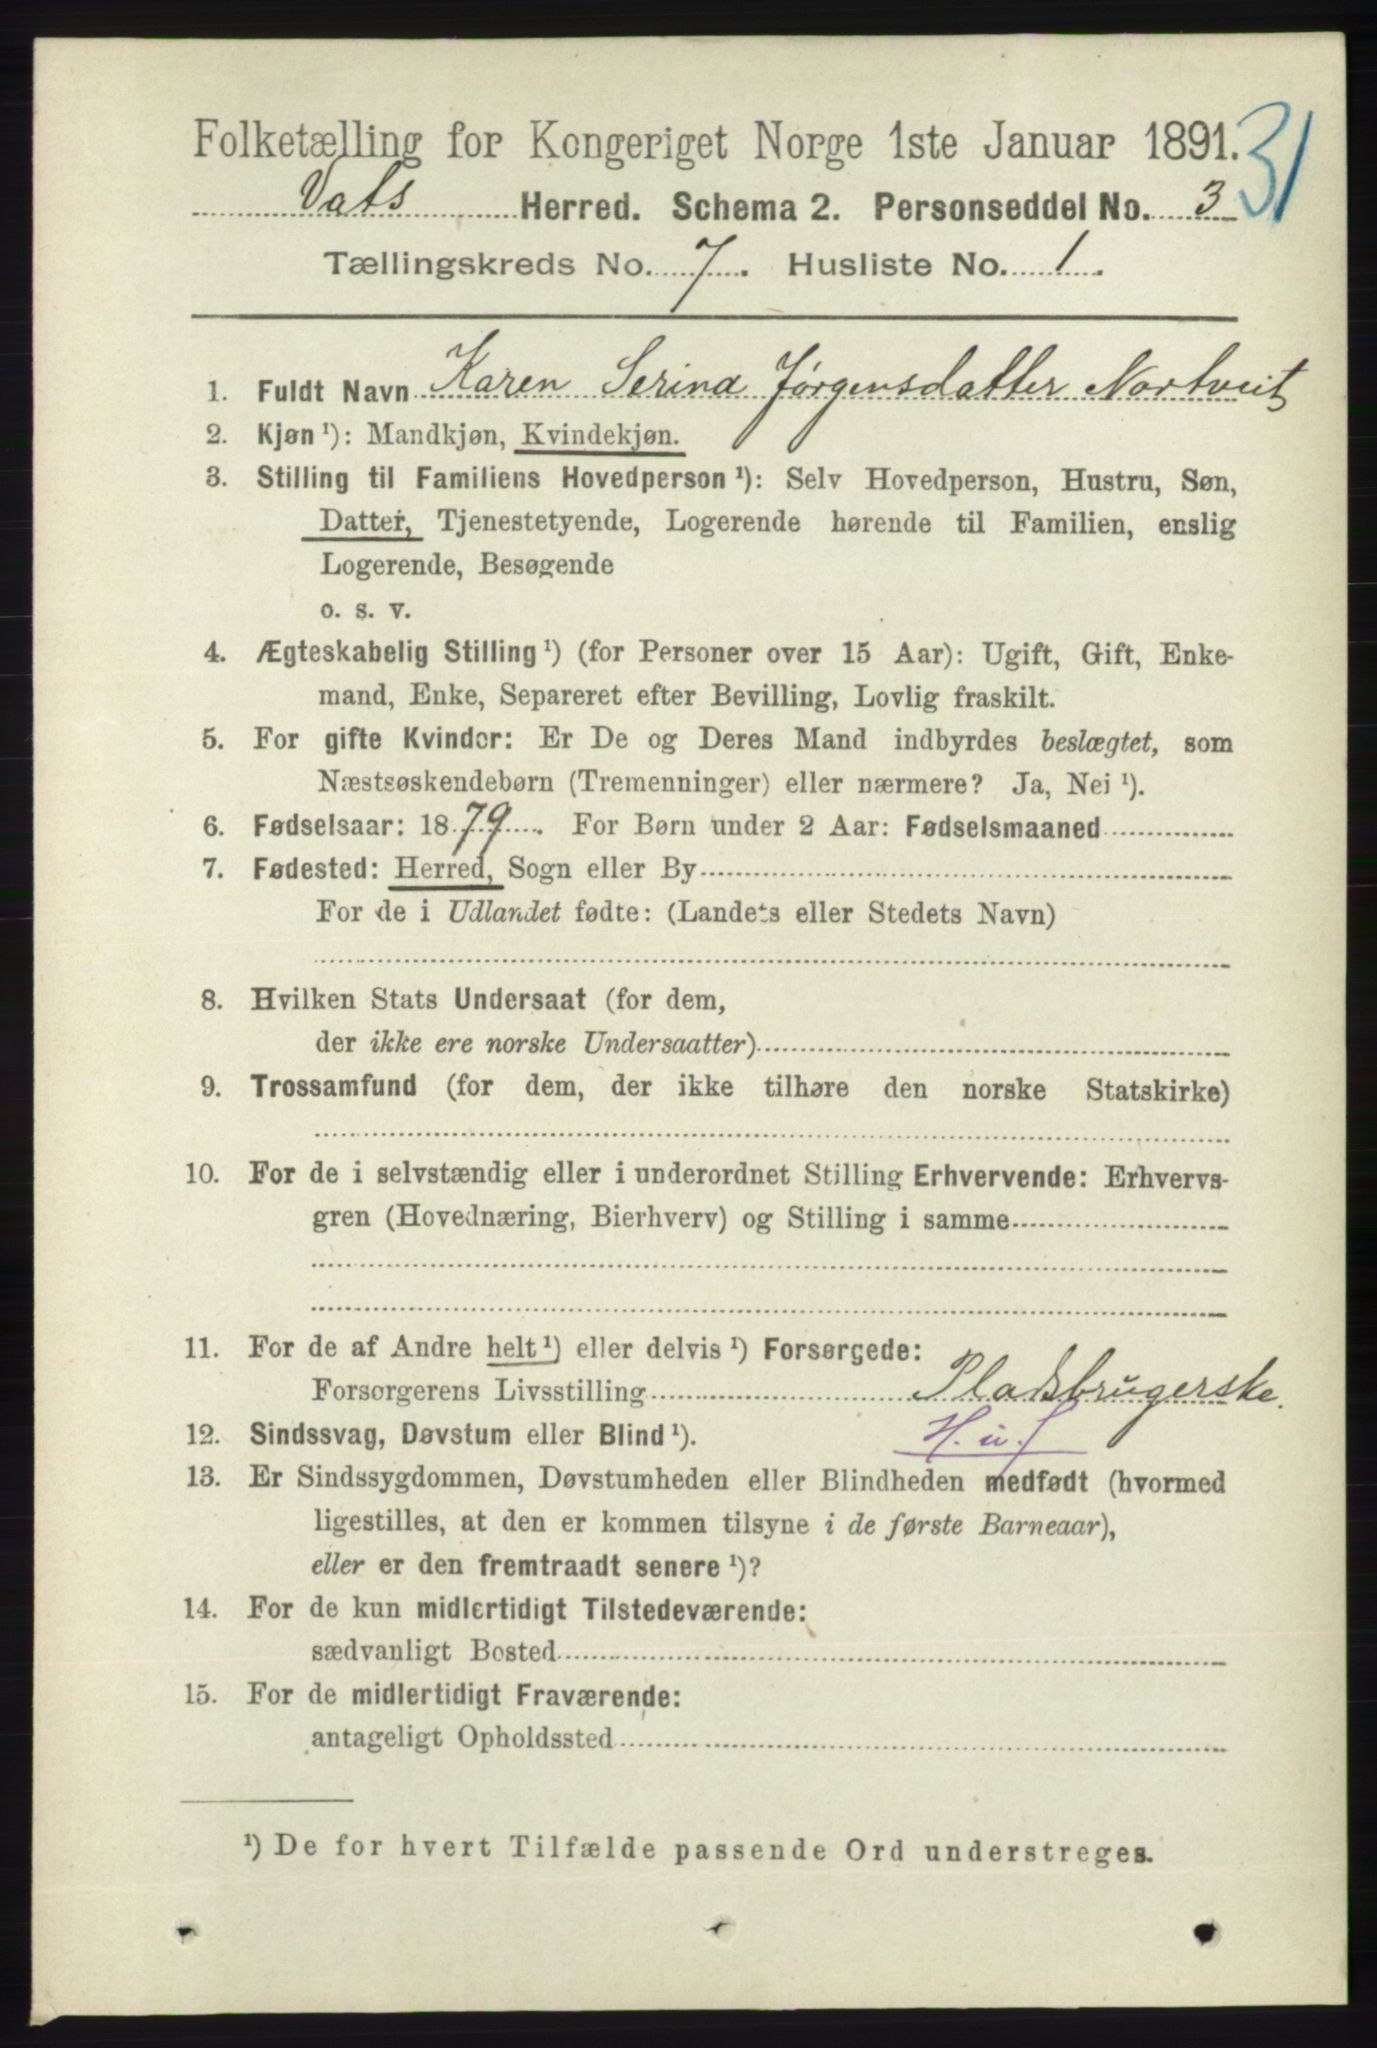 Folketælling for Kongeriget Norge 1ste Januar 1891. 31
Vats Herred. Schema 2. Personseddel No. 3
Tællingskreds No. 7. Husliste No. 1.
1. Fuldt Navn Karen Serina Jørgensdatter Nortveit
2. Kjøn ¹): Mandkjøn, Kvindekjøn.
3. Stilling til Familiens Hovedperson ¹): Selv Hovedperson, Hustru, Søn,
Datter, Tjenestetyende, Logerende hørende til Familien, enslig
Logerende, Besøgende
o. s. v.
4. Ægteskabelig Stilling ¹) (for Personer over 15 Aar): Ugift, Gift, Enke-
mand, Enke, Separeret efter Bevilling, Lovlig fraskilt.
5. For gifte Kvinder: Er De og Deres Mand indbyrdes beslægtet, som
Næstsøskendebørn (Tremenninger) eller nærmere? Ja, Nei ¹).
6. Fødselsaar: 1879. For Børn under 2 Aar: Fødselsmaaned
7. Fødested: Herred, Sogn eller By
For de i Udlandet fødte: (Landets eller Stedets Navn)
8. Hvilken Stats Undersaat (for dem,
der ikke ere norske Undersaatter)
9. Trossamfund (for dem, der ikke tilhøre den norske Statskirke)
10. For de i selvstændig eller i underordnet Stilling Erhvervende: Erhvervs-
gren (Hovednæring, Bierhverv) og Stilling i samme
11. For de af Andre helt ¹) eller delvis ¹) Forsørgede:
Forsørgerens Livsstilling Pladsbrugerske.
12. Sindssvag, Døvstum eller Blind ¹). H. u. f
13. Er Sindssygdommen, Døvstumheden eller Blindheden medfødt (hvormed
ligestilles, at den er kommen tilsyne i de første Barneaar),
eller er den fremtraadt senere ¹)?
14. For de kun midlertidigt Tilstedeværende:
sædvanligt Bosted
15. For de midlertidigt Fraværende:
antageligt Opholdssted
¹) De for hvert Tilfælde passende Ord understreges.